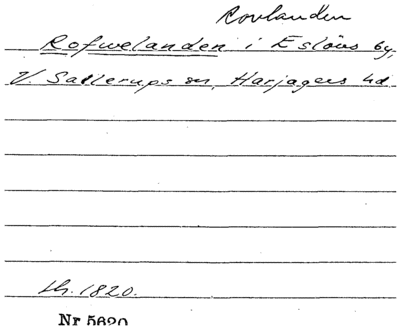 Rovlanden
Rofwelanden i Eslövs by,
V. Sallerups sn, Harjagers hd
Lh. 1820.
Nr 5620